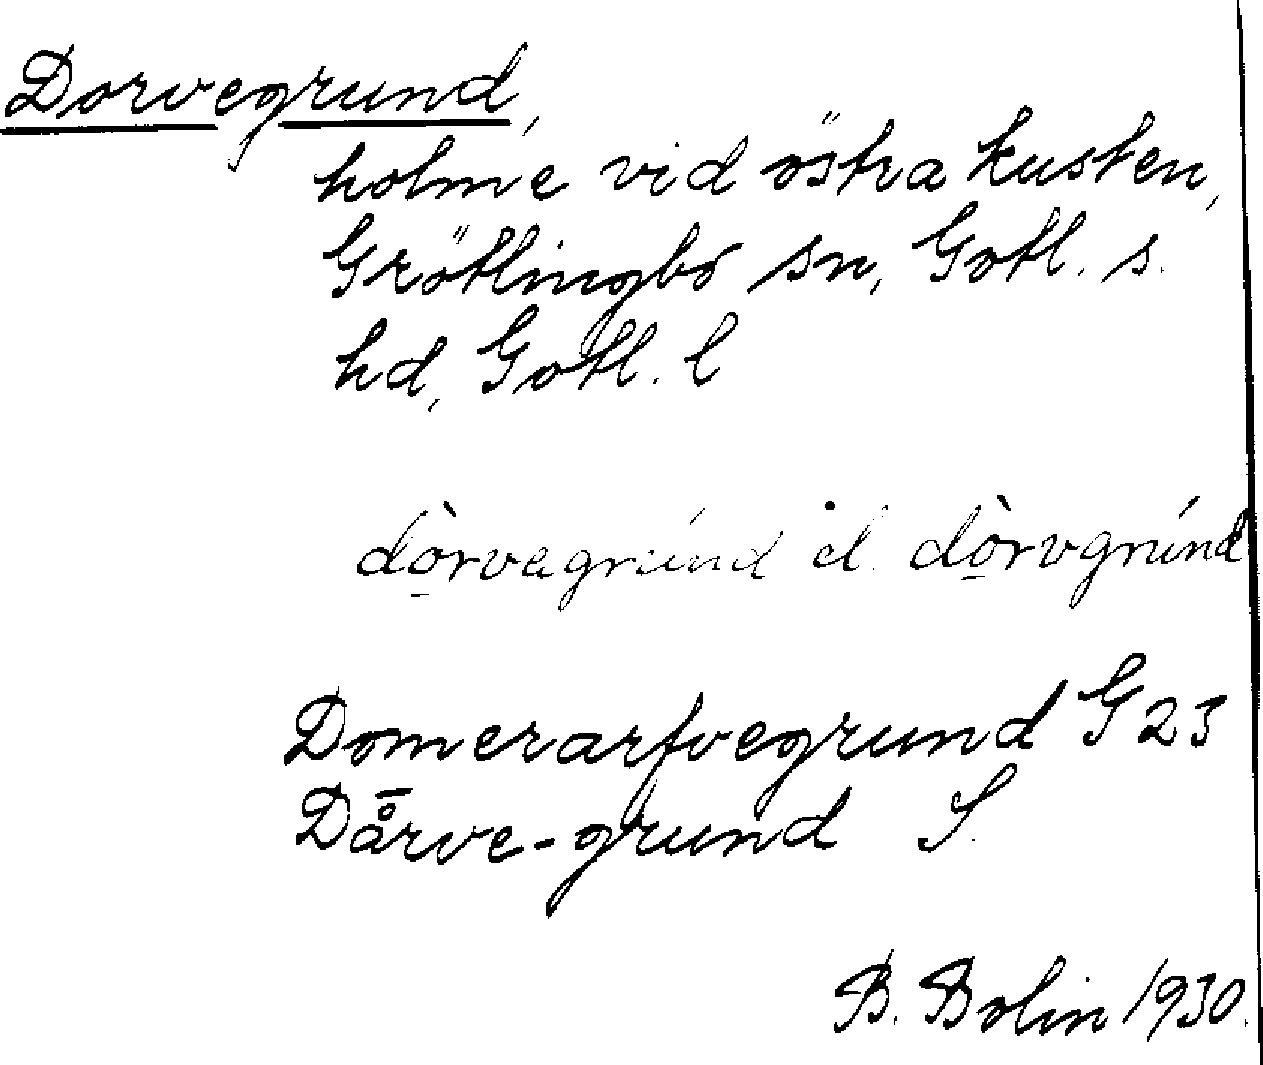 Dorvegrund,
holme vid östra kusten,
Grötlingbo sn, Gotl. s.
hd, Gotl. l
dò̠rvegrúnd el. dò̠rvgrúnd
Domerarfvegrund G 23
Då̄rve-grund S.
B. Bolin 1930.